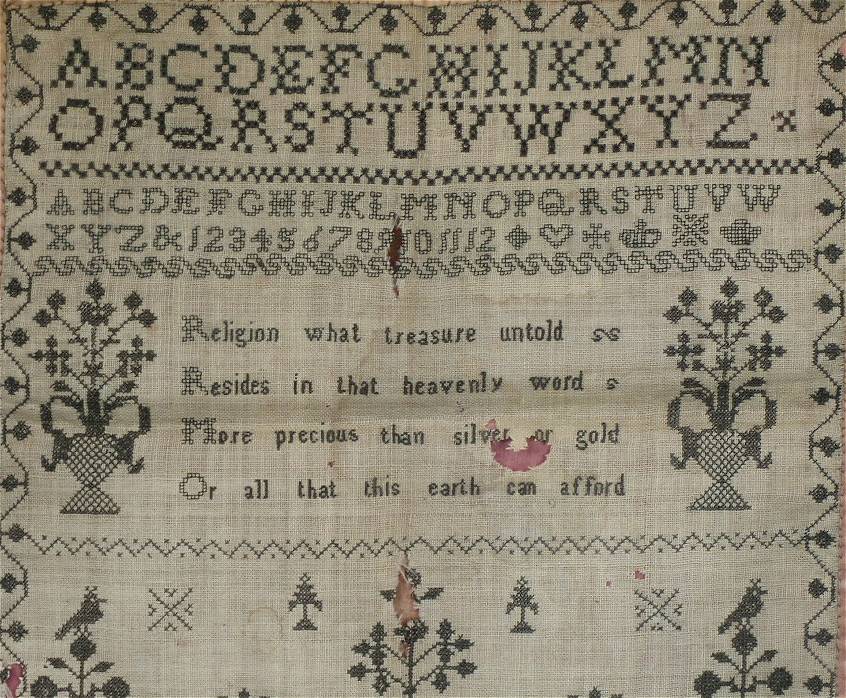 ABCDEFGHIJKLMN
OPQRSTUVWXYZ
ABCDEFGHIJKLMNOPQRSTUVW
XYZ&123456789101112
Religion what treasure untold
Resides in that heavenly word
More precious than silver or gold
Or all that this earth can afford